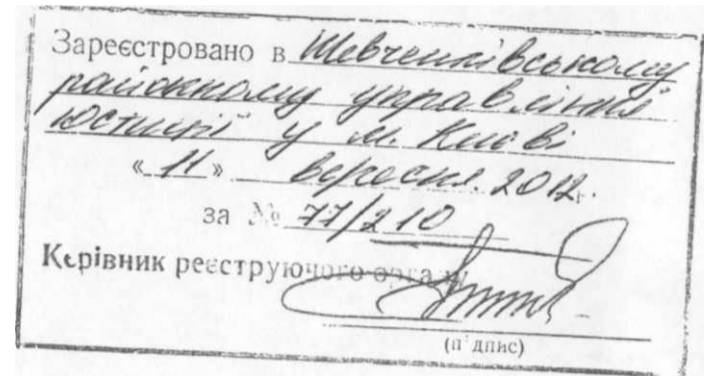 Зареєстровано в Шевченківському
районному управлінні
юстиції у м. Києві
« 11 » вересня 2012 г.
за № 77/210
Керівник реєструючого органу
(підпис)